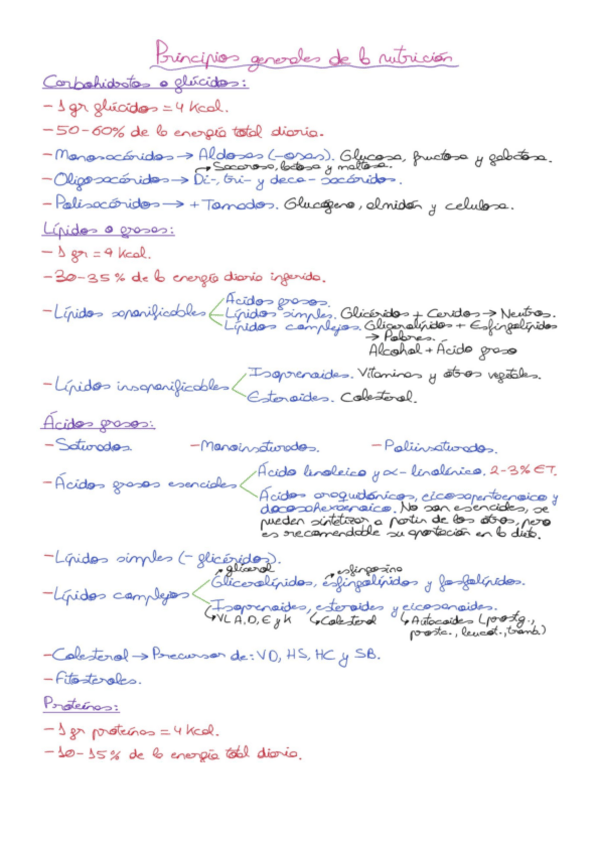 Principios generales de la nutrición
Carbohidratos o glúcidos:
- 1 gr glúcidos = 4 Kcal.
- 50-60% de la energía total diaria.
- Monosacáridos → Aldosas (-osas). Glucosa, fructosa y galactosa.
↱ Sacarosa, lactosa y maltosa.
- Oligosacáridos → Di-, tri- y deca- sacáridos.
- Polisacáridos → + Tomados. Glucógeno, almidón y celulosa.
Lípidos o grasas:
- 1 gr = 9 Kcal.
- 30-35% de la energía diaria ingerida.
Ácidos grasos.
- Lípidos saponificables Lípidos simples. Glicéridos + Ceridos → Neutros.
Lípidos complejos. Gliceralípidos + Esfingolípidos
→ Polares.
Alcohol + Ácido graso
Isoprenoides. Vitaminas y otros vegetales.
- Lípidos insaponificables
Esteroides. Colesterol.
Ácidos grasos:
- Saturados. - Monoinsaturados. - Poliinsaturados.
Ácido linoleico y α-linolénico. 2-3% ET.
- Ácidos grasos esenciales
Ácidos araquidónicos, eicosapentaenoico y
docosohexaenoico. No son esenciales, se
pueden sintetizar a partir de los otros, pero
es recomendable su aportación en la dieta.
- Lípidos simples (- glicéridos).
↱ glicerol ↱ esfingosina
Gliceralípidos, esfingolípidos y fosfolípidos.
- Lípidos complejos
Isoprenoides, esteroides y eicosanoides.
↳ VL A, D, E y K ↳ Colesterol ↳ Autacoides (prostg.,
prosta., leucot., tromb.)
- Colesterol → Precursor de: VD, HS, HC y SB.
- Fitosteroles.
Proteínas:
- 1 gr proteínas = 4 Kcal.
- 10-15% de la energía total diaria.